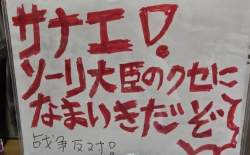 サナエ!
ソーリ大臣のクセに
なまいきだぞ
戦争反対!